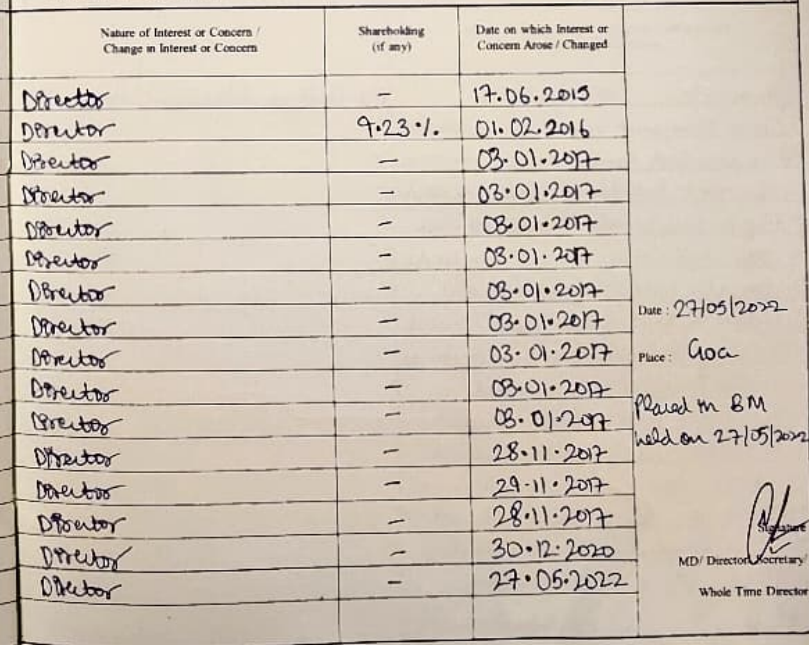 Nature of Interest or Concern / Change in Interest or Concern
Shareholding (if any)
Date on which Interest or Concern Arose / Changed
Director - 17.06.2015
Director 9.23 %. 01.02.2016
Director - 03.01.2017
Director - 03.01.2017
Director - 03.01.2017
Director - 03.01.2017
Director - 03.01.2017
Director - 03.01.2017
Director - 03.01.2017
Director - 03.01.2017
Director - 03.01.2017
Director - 28.11.2017
Director - 29.11.2017
Director - 28.11.2017
Director - 30.12.2020
Director - 27.05.2022
Date : 27/05/2022
Place : Goa
Placed in BM
held on 27/05/2022
Signature
MD/ Director/Secretary/
Whole Time Director